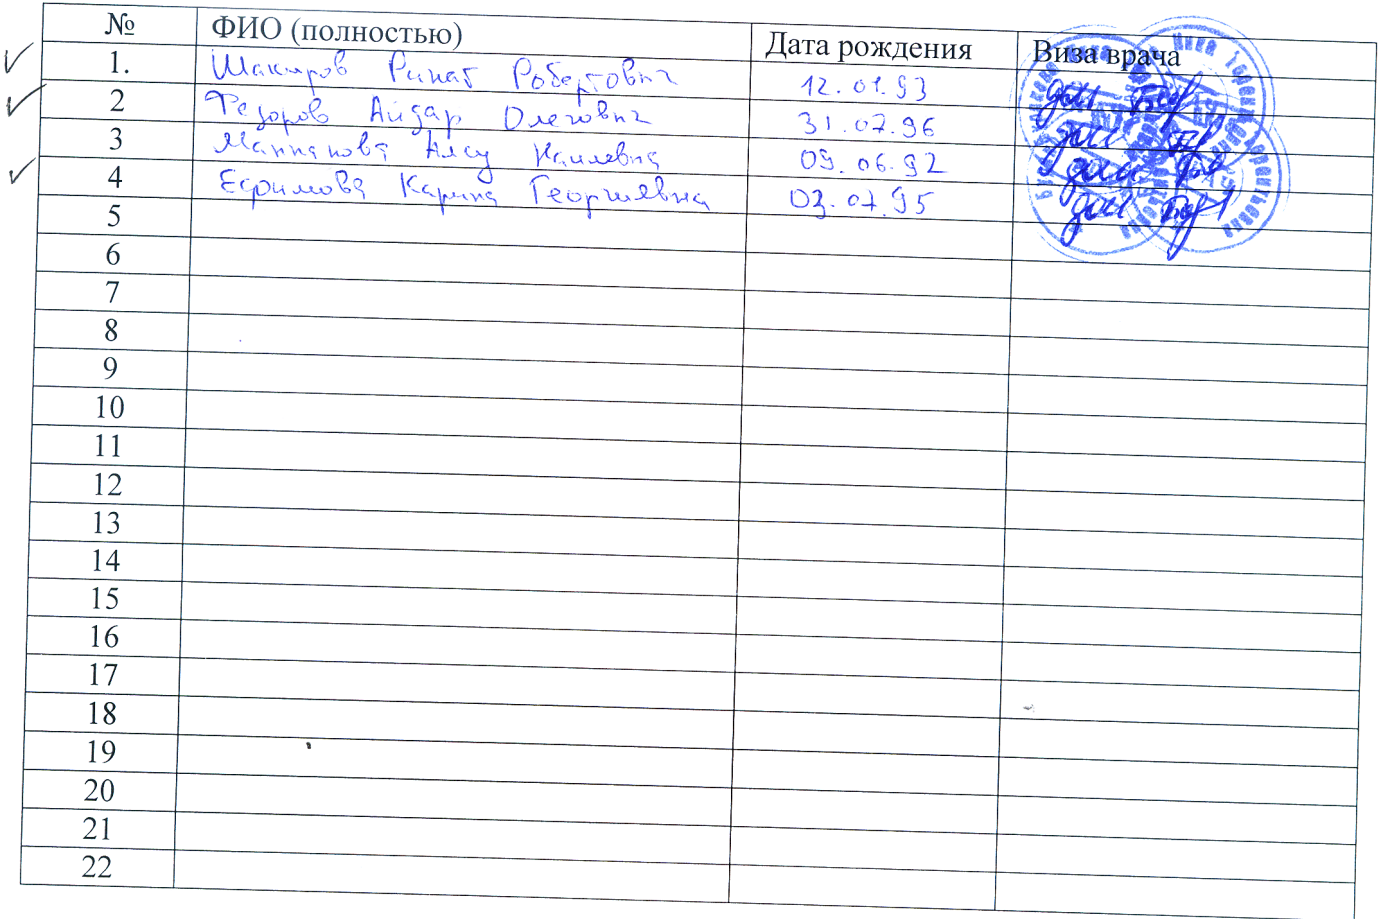 № ФИО (полностью) Дата рождения Виза врача
1. Шакиров Ринат Робертович 12.01.93
2 Федоров Айдар Олегович 31.07.96
3 Маннанова Алсу Наилевна 09.06.92
4 Ефимова Карина Георгиевна 03.07.95
5
6
7
8
9
10
11
12
13
14
15
16
17
18
19
20
21
22